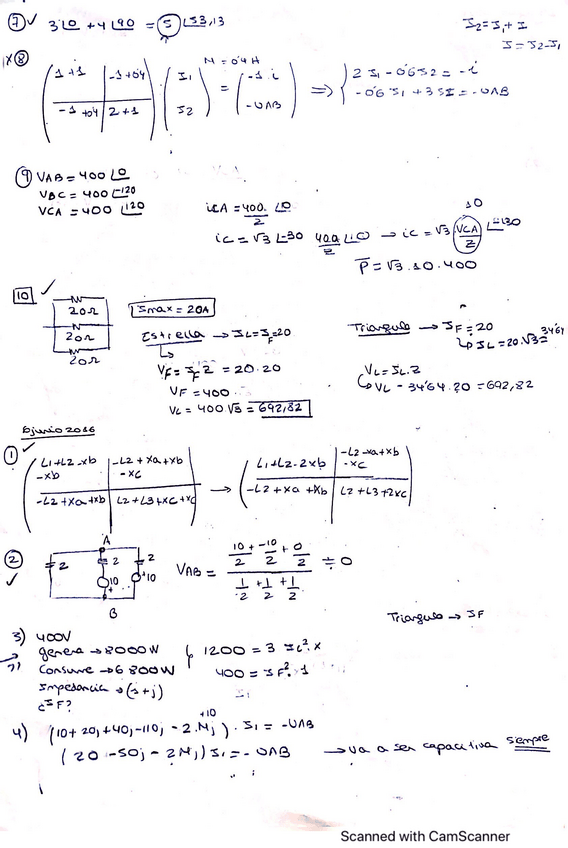 7 3∠0 + 4∠90 = 5 ∠53,13
I2 = I1 + I
I = I2 - I1
x 8 M = 0'4 H
( 1+1 | -1+0'4 ) ( I1 ) = ( -1·i ) ⇒ { 2 I1 - 0'6 I2 = -i
( -1+0'4 | 2+1 ) ( I2 ) ( -UAB ) -0'6 I1 + 3 I2 = -UAB
9 VAB = 400 ∠0
VBC = 400 ∠-120
VCA = 400 ∠120
iCA = 400/2 ∠0
iC = √3 ∠-30 400/2 ∠0 → iC = √3 VCA/Z ∠-30
10
P = √3 · 10 · 400
10 20Ω
20Ω
20Ω
Imax = 20A
Estrella → IL = IF = 20
VF = IF Z = 20·20
VF = 400
VL = 400 √3 = 692,82
Triangulo → IF = 20
IL = 20·√3 = 34'64
VL = IL·Z
VL = 34'64·20 = 692,82
junio 2016
1 ( L1+L2-xb -xb | -L2+xa+xb -xc ) → ( L1+L2-2xb | -L2-xa+xb -xc )
( -L2+xa+xb | L2+L3+xc+xc ) ( -L2+xa+xb | L2+L3+2xc )
2 A
2 2 2
10 10
B
VAB = (10/2 + -10/2 + 0/2) / (1/2 + 1/2 + 1/2) = 0
Triangulo → IF
3) 400V
genera → 8000W
Consume → 6800W
Impedancia → (1+j)
¿IF?
1200 = 3 IL²·x
400 = IF²·1
4) (10+20j+40j-110j-2·Mj+10) · I1 = -UAB
(20-50j-2Mj) I1 = -UAB → Va a ser capacitiva siempre
Scanned with CamScanner